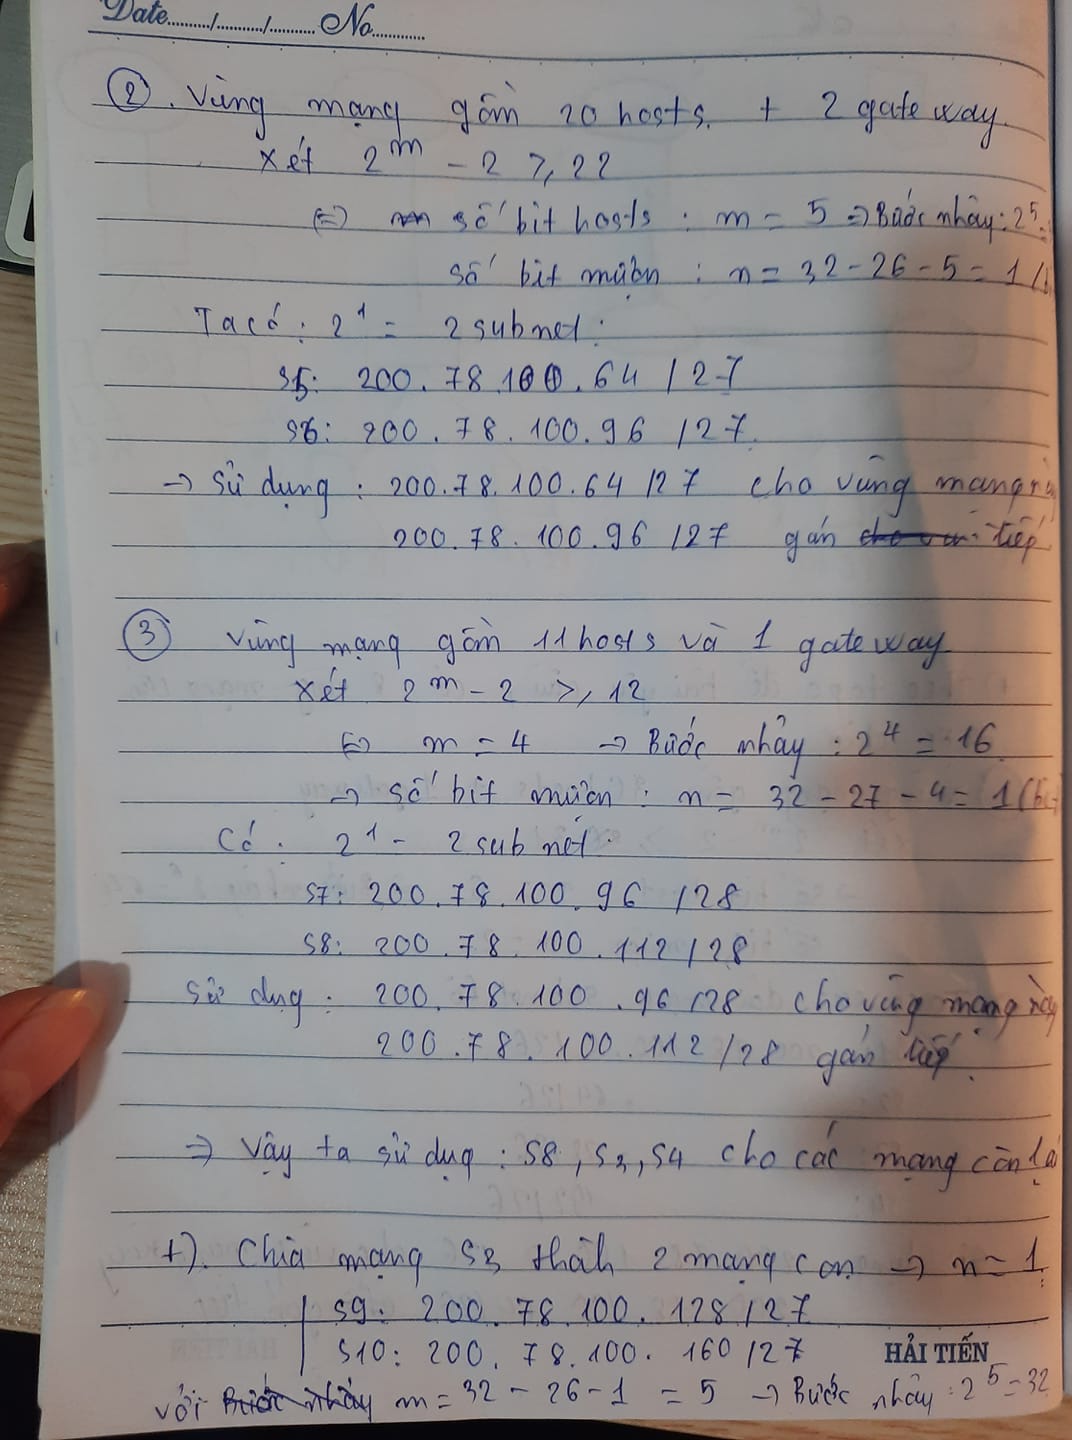 Date........./........./......... No............
② . Vùng mạng gồm 20 hosts. + 2 gate way.
Xét 2^m - 2 ≥ 22
⇔ số bit hosts : m = 5 ⇒ Bước nhảy : 2^5 =
số bit mượn : n = 32 - 26 - 5 = 1
Ta có : 2^1 = 2 subnet :
S5: 200.78.100.64 /27
S6: 200.78.100.96 /27.
→ Sử dụng : 200.78.100.64 /27 cho vùng mạng
200.78.100.96 /27 gán tiếp
③ Vùng mạng gồm 11 hosts và 1 gate way
Xét 2^m - 2 ≥ 12
⇔ m = 4 → Bước nhảy : 2^4 = 16
→ số bit mượn : n = 32 - 27 - 4 = 1 (bit
Có : 2^1 = 2 subnet.
S7: 200.78.100.96 /28
S8: 200.78.100.112 /28
Sử dụng : 200.78.100.96 /28 cho vùng mạng này
200.78.100.112 /28 gán tiếp.
⇒ Vậy ta sử dụng : S8, S3, S4 cho các mạng còn lại
+). Chia mạng S3 thành 2 mạng con → n = 1.
S9: 200.78.100.128 /27
S10: 200.78.100.160 /27
HẢI TIẾN
với m = 32 - 26 - 1 = 5 → Bước nhảy : 2^5 = 32